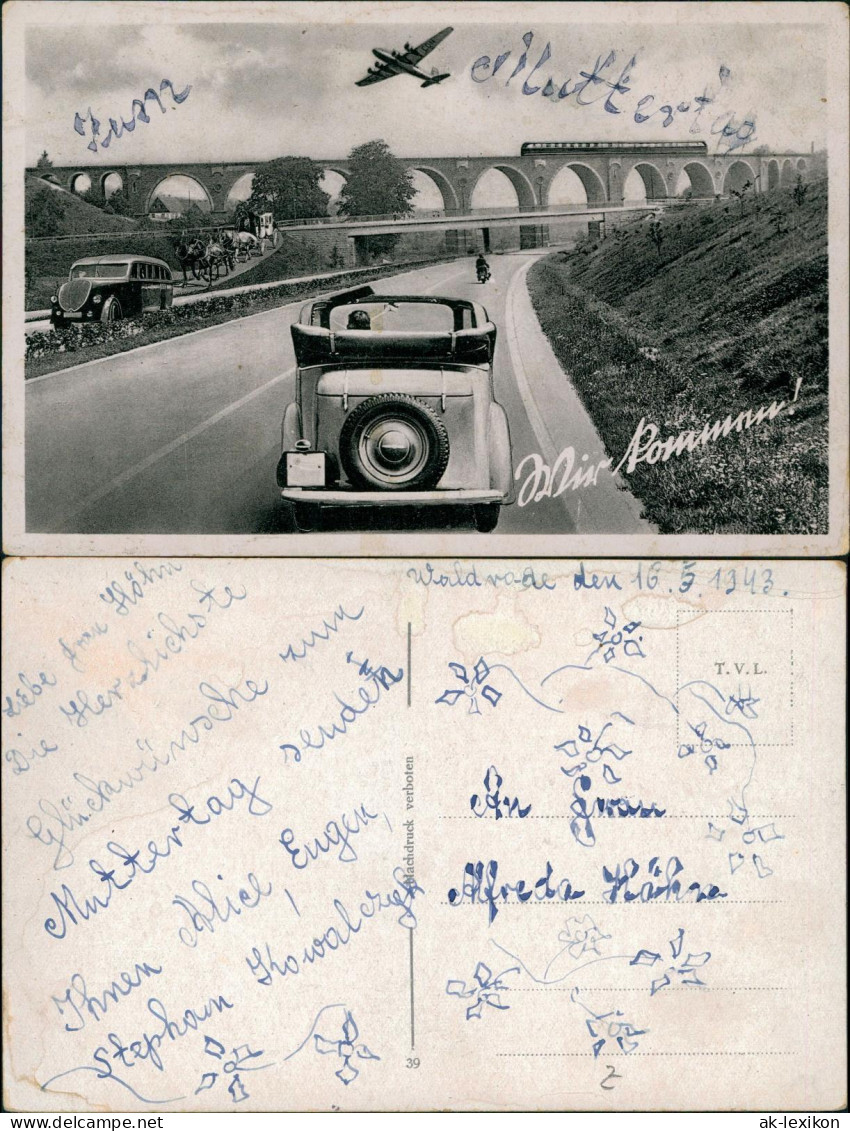 Zum Muttertag
Wir kommen!
Liebe Frau Höhn
Die Herzlichste
Glückwünsche zum
Muttertag senden
Ihnen Alice, Eugen,
Stepham Kowalczyk
Nachdruck verboten
39
Waldrode den 16.5.1943.
T.V.L.
An Frau
Alfreda Höhne
Z
ak-lexikon
© oldthing.com